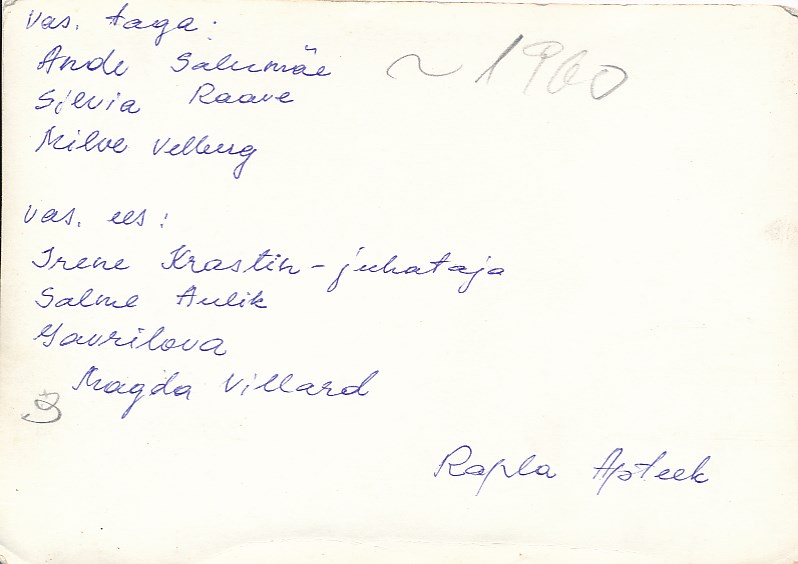 vas. taga:
Ande Salumäe
~ 1960
Silvia Raave
Milve Vellberg
vas. ees:
Irene Krastin - juhataja
Salme Aulik
Gavrilova
Magda Villard
3
Rapla Apteek